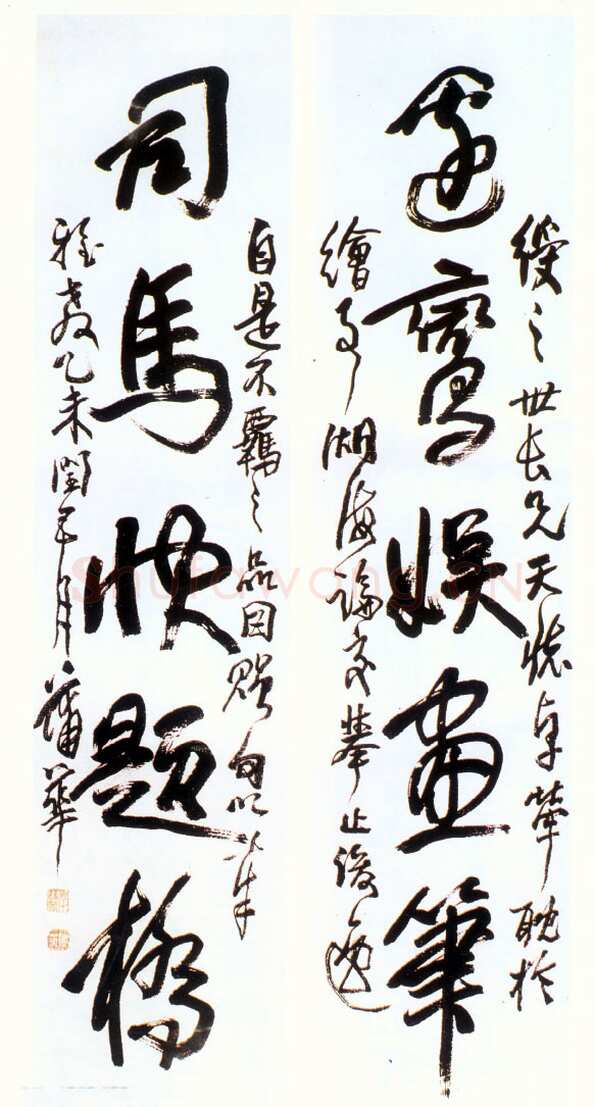 之世長兄天懷卓犖耽於
邊鸞娛畫筆
繪事湖海論交舉止俊逸
自是不羈之品因贈句以奉
司馬快題橋
雅教乙未閏五月蒲華
Shufawang.CN